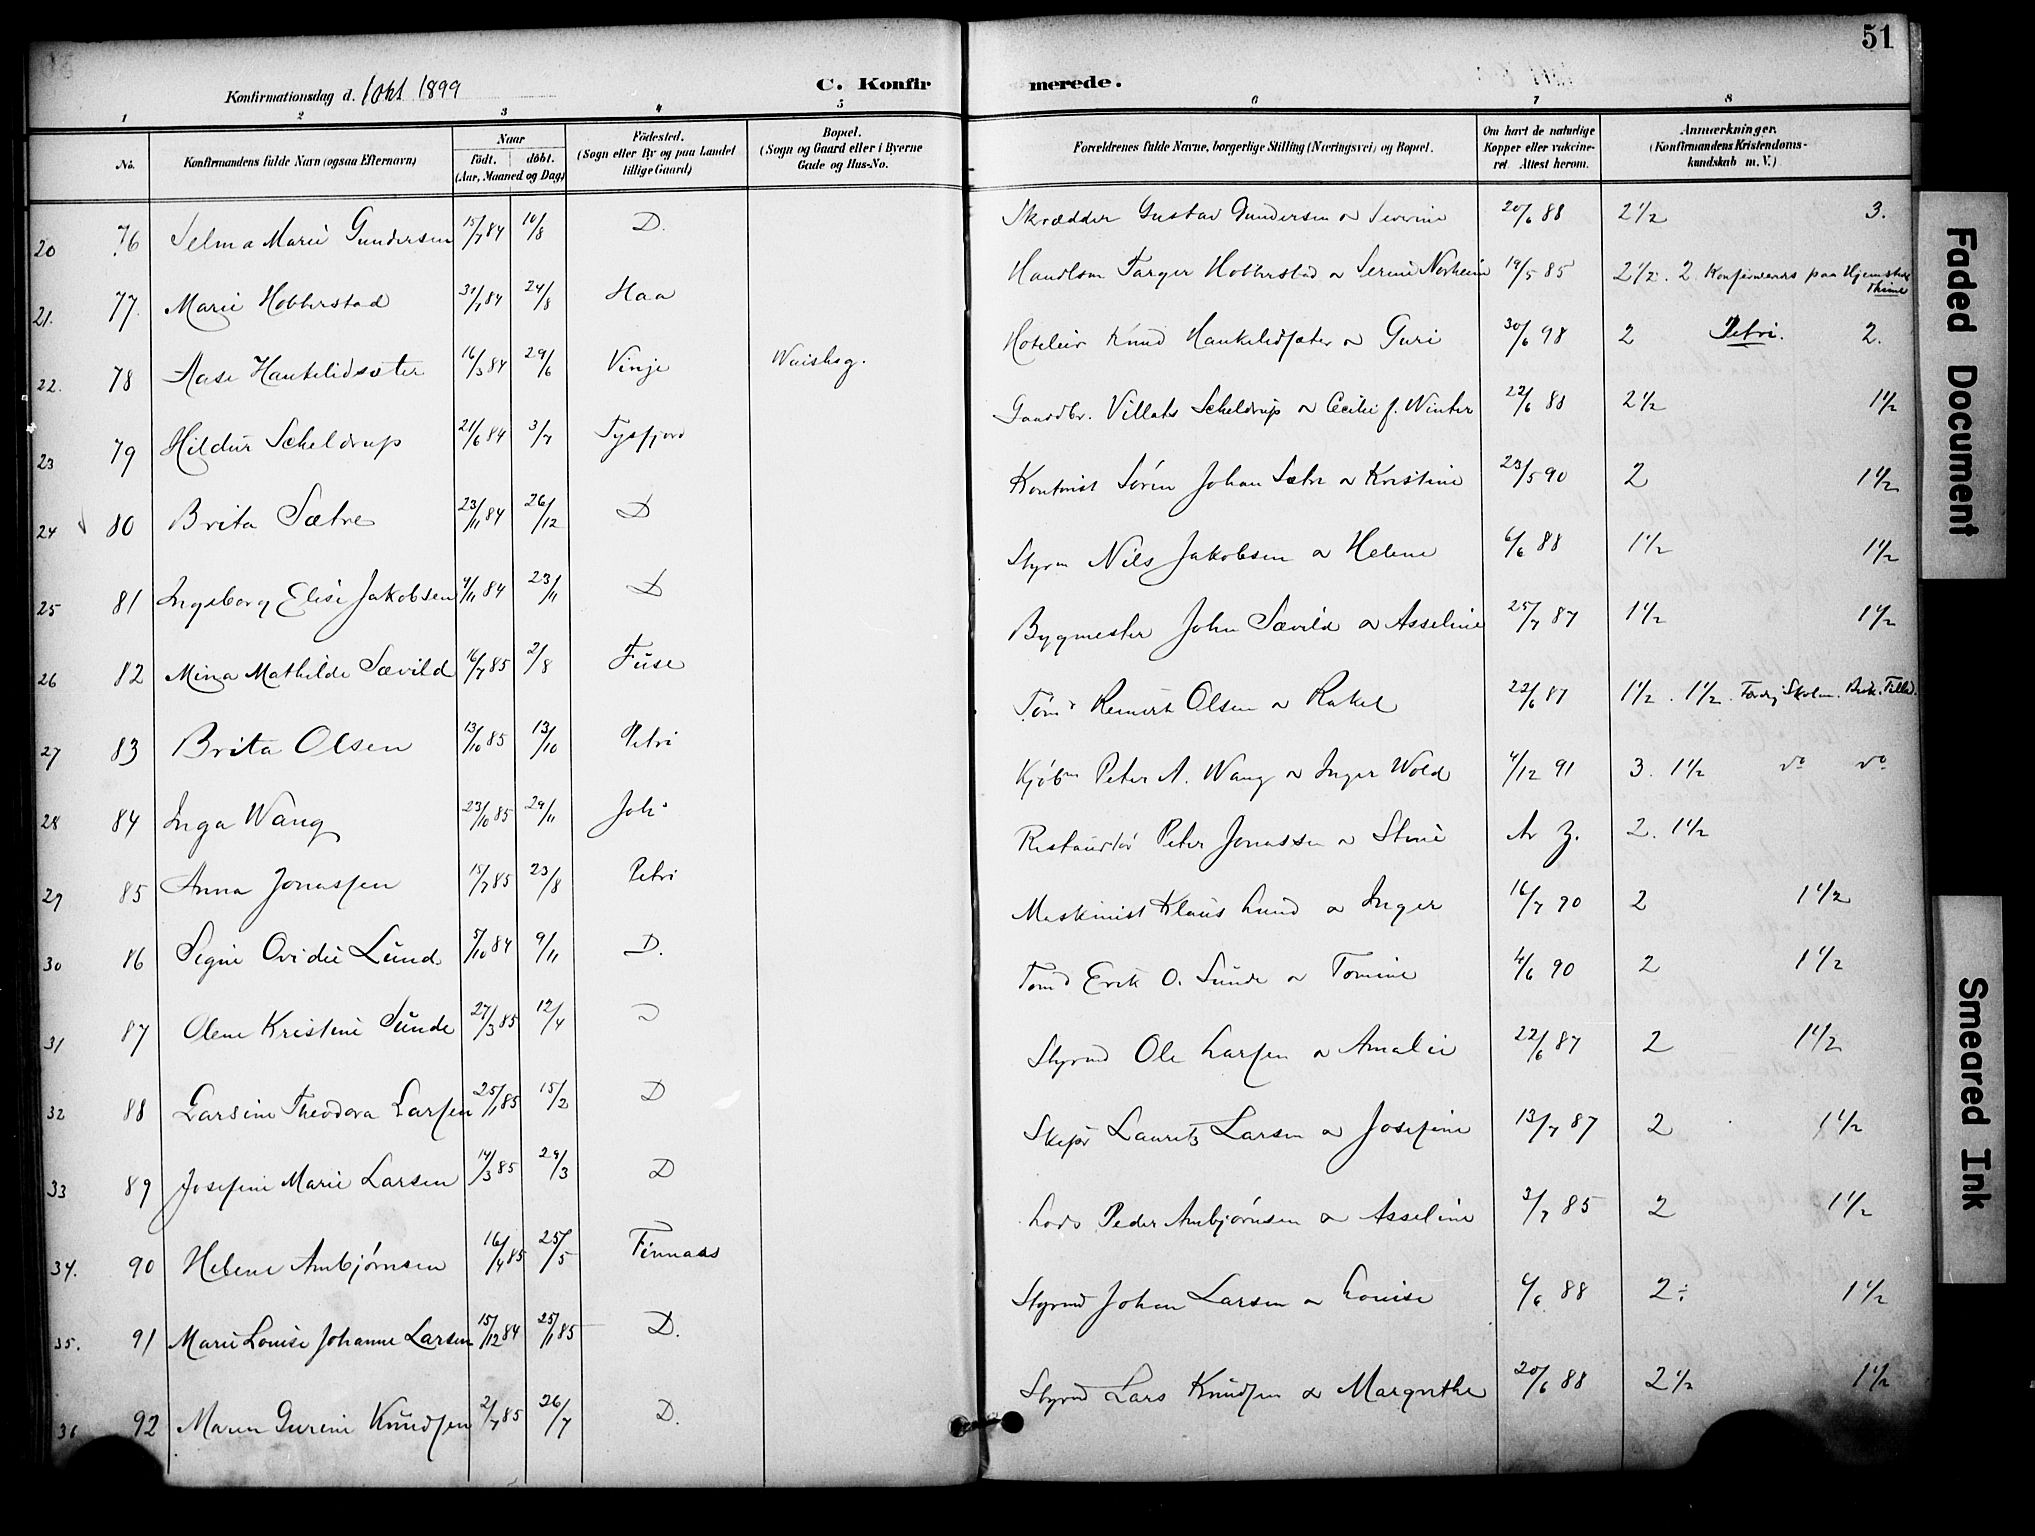 51
Konfirmationsdag d. 1 Okt 1899
C. Konfirmerede.
1 2 3 4 5 6 7 8
No. Konfirmandens fulde Navn (ogsaa Efternavn) Naar født. døbt. (Aar, Maaned og Dag) Fødested. (Sogn eller By og paa Landet tillige Gaard) Bopæl. (Sogn og Gaard eller i Byerne Gade og Hus-No. Forældrenes fulde Navne, borgerlige Stilling (Næringsvei) og Bopæl. Om havt de naturlige Kopper eller vakcineret. Attest herom. Anmærkninger. (Konfirmandens Kristendomskundskab m. V.)
20 76 Selma Marie Gundersen 15/7 84 10/8 D. Skrædder Gustav Gundersen & Severine 20/6 88 2 1/2 3.
21. 77. Marie Hobberstad 31/7 84 24/8 Haa Handlsm Targer Hobberstad & Serine Norheim 19/5 85 2 1/2. 2 Konfirmeres paa Hjemstedet Thime
22. 78 Aase Haukelidsæter 16/3 84 29/6 Vinje Hoteleier Knud Haukelidsæter & Guri 30/6 98 2 Petri. 2.
23 79 Hildur Scheldrup 21/6 84 3/7 Tysfjord Gaardbr. Villats Scheldrup & Cecilie f. Winter 22/6 88 2 1/2 1 1/2
24 80 Brita Sætre 23/11 84 26/12 D Kontorist Sören Johan Sætre & Kristine 23/5 90 2 1 1/2
25 81 Ingeborg Elise Jakobsen 4/11 84 23/11 D Styrm Nils Jakobsen & Helene 6/6 88 1 1/2 1 1/2
26 82 Mina Mathilde Sævild 16/7 85 2/8 Fuse Bygmester John Sævild & Asseline 25/7 87 1 1/2 1 1/2
27 83 Brita Olsen 13/10 85 13/10 Petri Töm Reinert Olsen & Rakel 22/6 87 1 1/2. 1 1/2.
28 84 Inga Wang 23/10 85 29/11 Joh. Kjøbm Peter A. Wang & Inger Wold 4/12 91 3. 1 1/2 do do
29 85 Anna Jonassen 15/7 85 23/8 Petri Restaurtør Peter Jonassen & Stine 2. 1 1/2
30 86 Signe Ovidie Lund 5/10 84 9/11 D. Maskinist Klaus Lund & Inger 16/7 90 2 1 1/2
31 87 Olene Kristine Sunde 27/3 85 12/4 D Tömd Erik O. Sunde & Tomine 4/6 90 2 1 1/2
32 88 Larsine Theodora Larsen 25/1 85 15/2 D Styrmd Ole Larsen & Amalie 22/6 87 2 1 1/2
33 89 Josefine Marie Larsen 14/3 85 29/3 D Skipr Lauritz Larsen & Josefine 13/7 87 2 1 1/2
34. 90 Helene Ambjørnsen 16/4 85 25/5 Finnaas Lods Peder Ambjørnsen & Asseline 3/7 85 2 1 1/2
35. 91 Marie Louise Johanne Larsen 15/12 84 25/1 85 D. Styrmd Johan Larsen & Louise 6/6 88 2÷ 1 1/2
36 92 Maren Gurine Knudsen 2/7 85 26/7 D. Styrmd Lars Knudsen & Margrethe 20/6 88 2 1/2 1 1/2
Faded Document
Smeared Ink